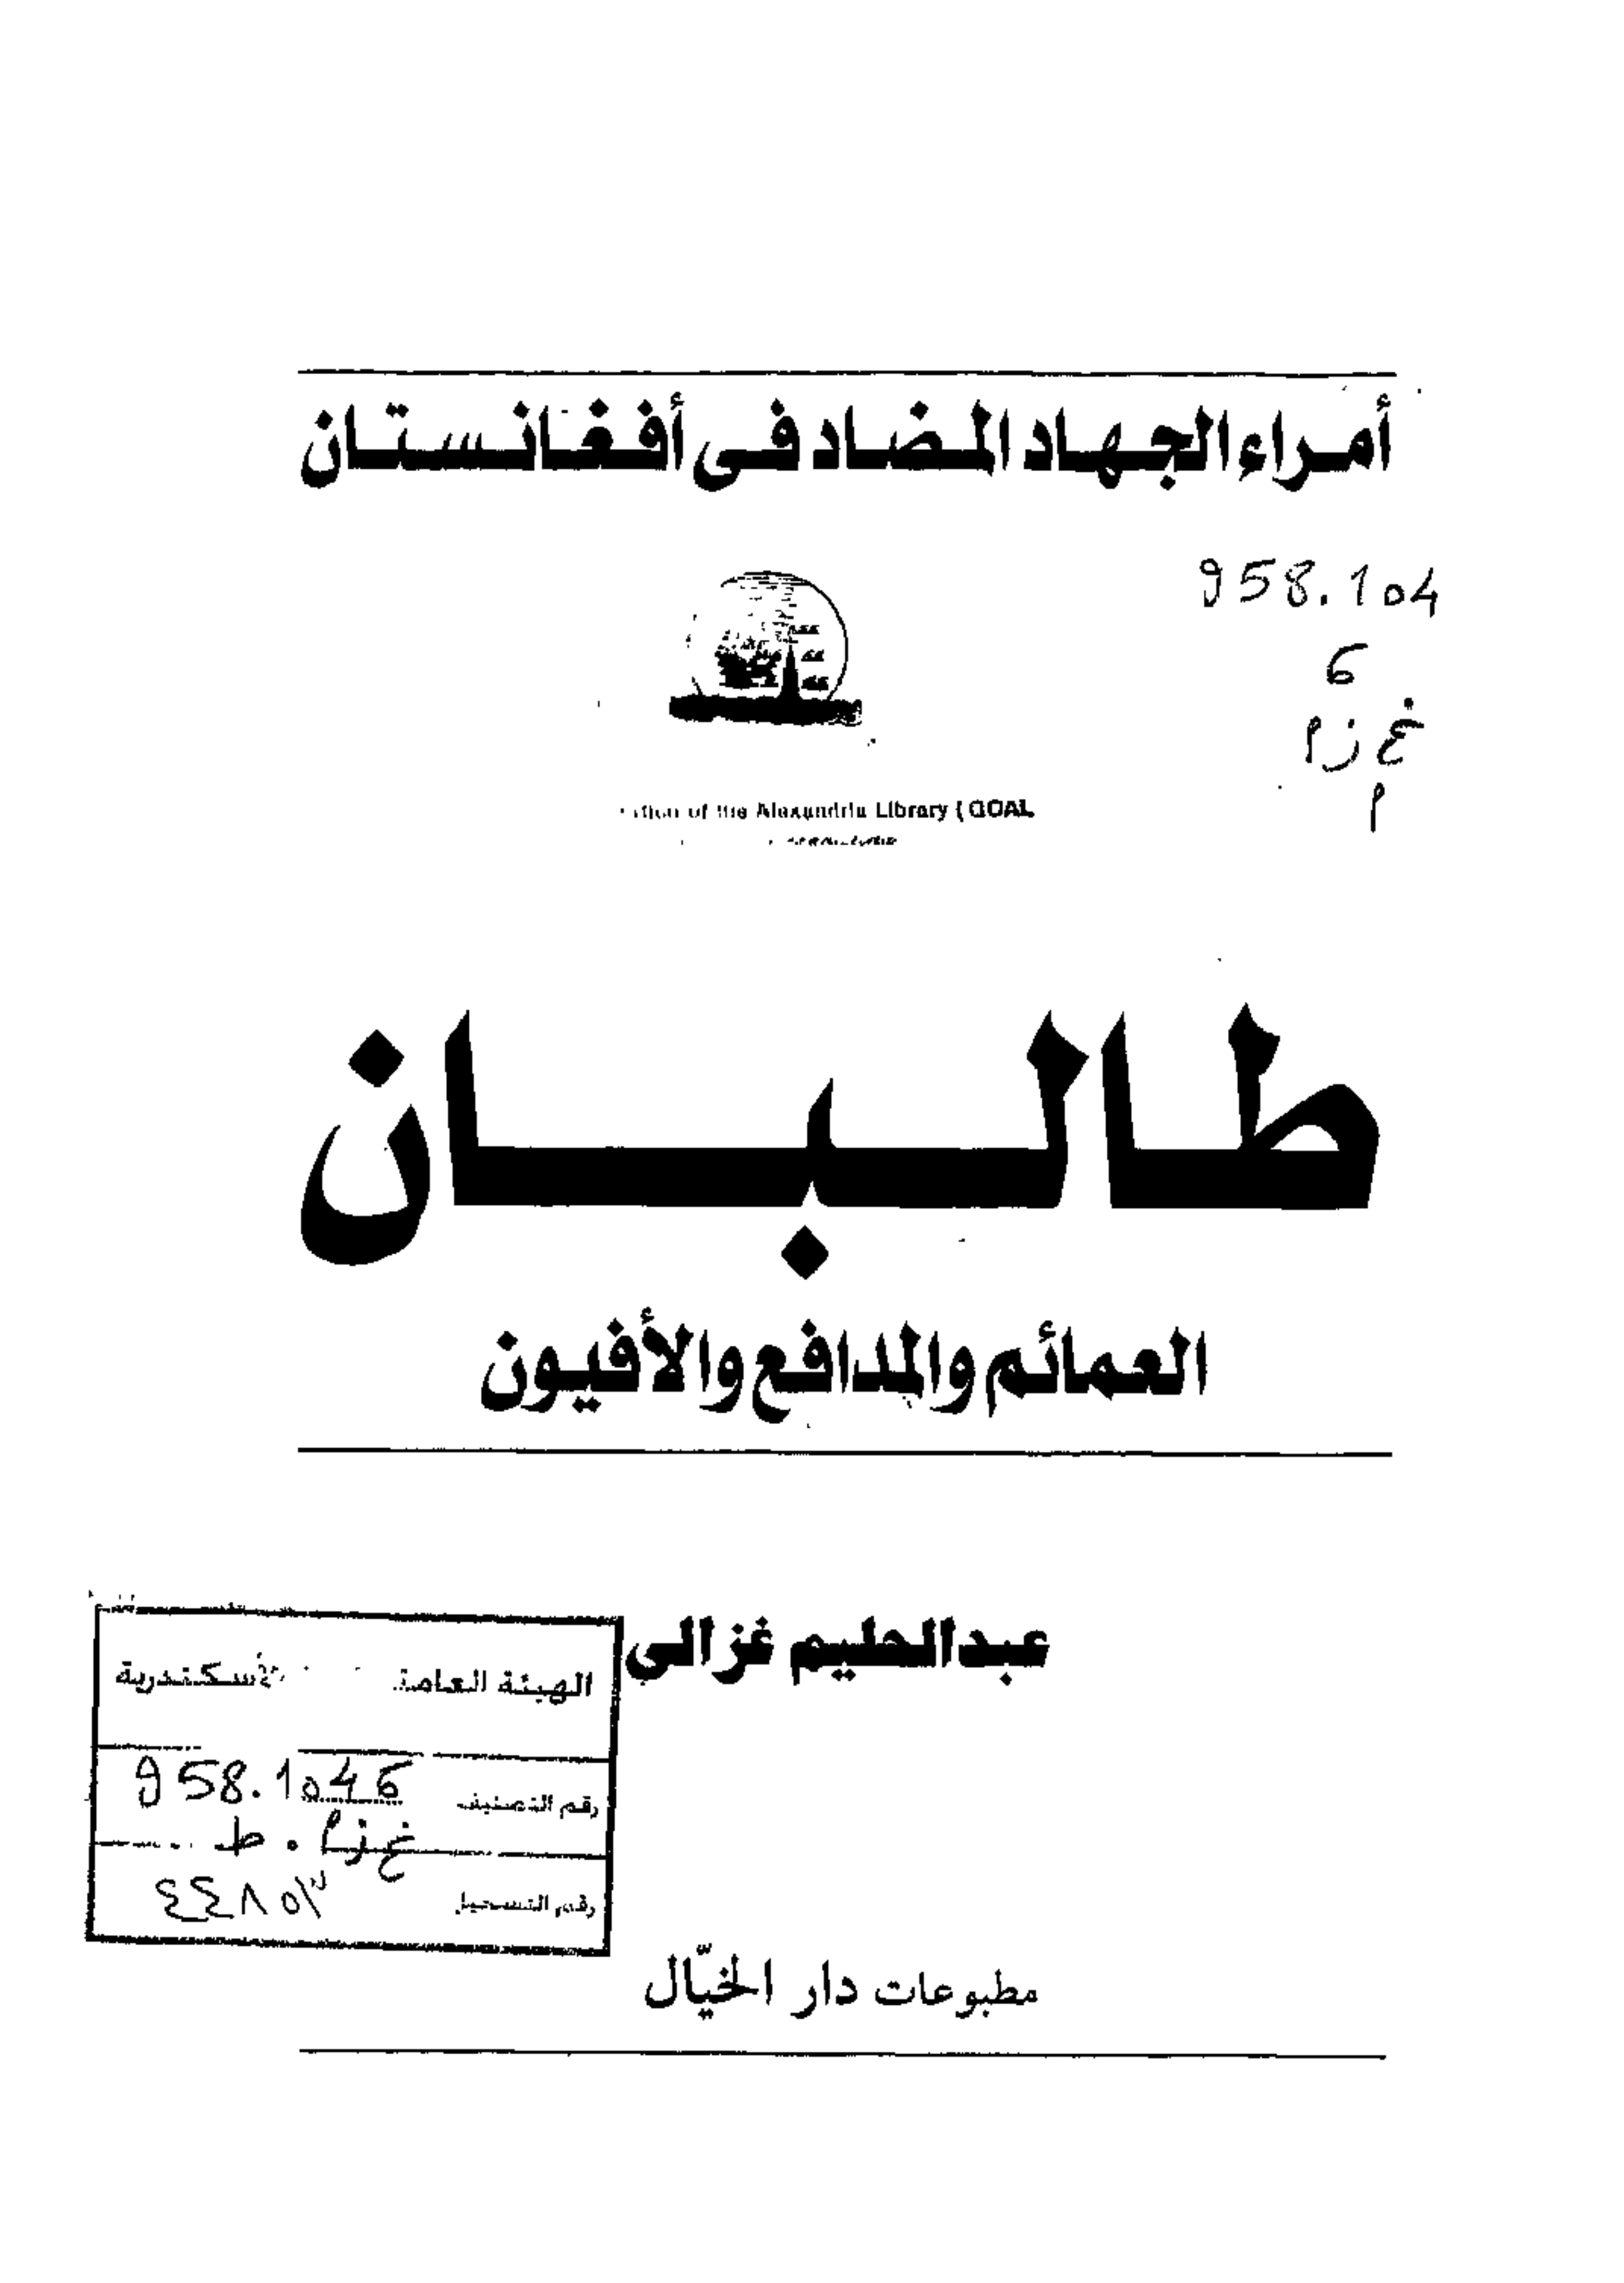 أمراء الجهاد المضاد فى أفغانستان
958.104
6
غ ز م
م
of the Alexandria Library ( GOAL
طالبان
العمائم والمدافع والأفيون
عبدالحليم غزالي
الهيئة العامة الأسكندرية
رقم التصنيف 958.1046
غ ز م . ط
رقم التسجيل
مطبوعات دار الخيّال